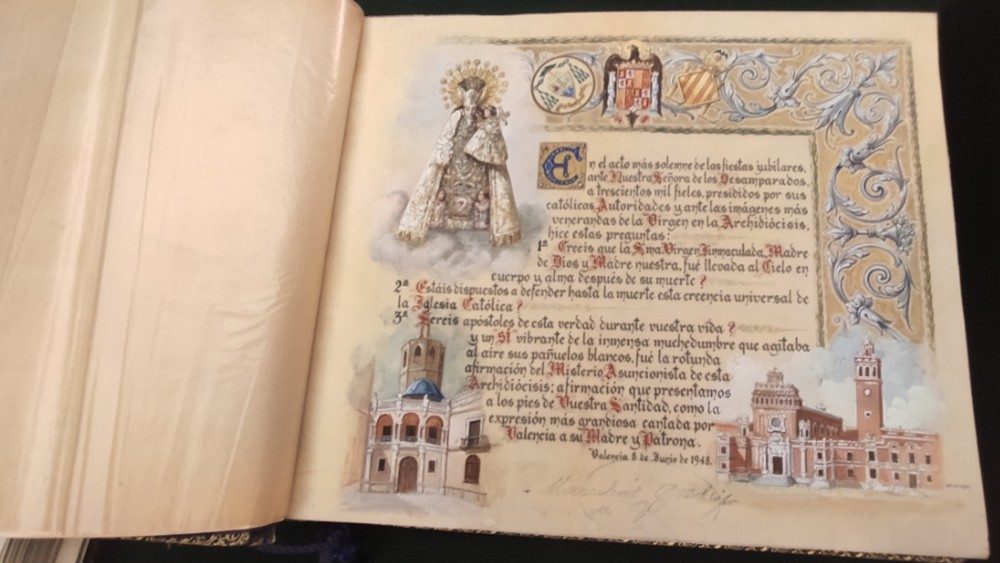 En el acto más solemne de las fiestas jubilares,
ante Nuestra Señora de los Desamparados,
a trescientos mil fieles, presididos por sus
católicas Autoridades y ante las imágenes más
venerandas de la Virgen en la Archidiócisis,
hice estas preguntas:
1ª Creeis que la Sma Virgen Inmaculada, Madre
de Dios y Madre nuestra, fué llevada al Cielo en
cuerpo y alma después de su muerte?
2ª Estáis dispuestos a defender hasta la muerte esta creencia universal de
la Iglesia Católica?
3ª Sereis apostoles de esta verdad durante vuestra vida?
y un "SI" vibrante de la inmensa muchedumbre que agitaba
al aire sus pañuelos blancos, fué la rotunda
afirmación del Misterio Asuncionista de esta
Archidiócisis; afirmación que presentamos
a los pies de Vuestra Santidad, como la
expresión más grandiosa cantada por
Valencia a su Madre y Patrona.
Valencia 8 de Junio de 1948.